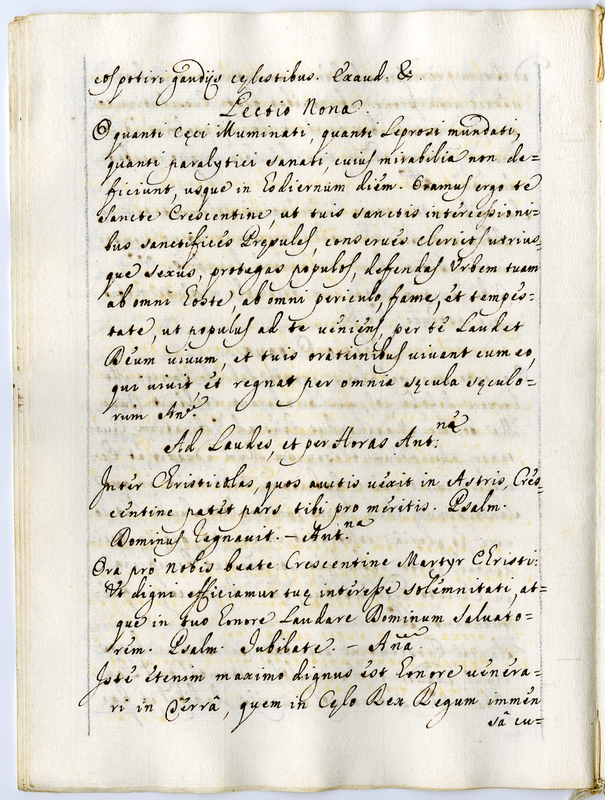 cos potiri gaudijs cęlestibus. Exaud. &c.
Lectio Nona.
O quanti cęci illuminati, quanti Leprosi mundati,
quanti paralytici sanati, cuius mirabilia non de=
ficiunt, usque in Hodiernum diem. Oramus ergo te
Sancte Crescentine, ut tuis sanctis intercessioni=
bus sanctifices Prępules, conserues clericos utrius=
que sexus, protegas populos, defendas Urbem tuam
ab omni Hoste, ab omni periculo, fame, et tempes=
tate, ut populus ad te ueniens, per te Laudet
Deum uiuum, et tuis orationibus uiuant cum eo,
qui uiuit et regnat per omnia sęcula sęculo=
rum
Ad Laudes, et per Horas Ant:na
Inter Christicolas, quos auctis uexit in Astris, Cres=
centine patet pars tibi pro meritis. Psalm.
Dominus regnauit. - Ant.na
Ora pro nobis beate Crescentine Martyr Christi:
Ut digni efficiamur tuę interesse solemnitati, at=
que in tuo Honore Laudare Dominum Saluato=
rem. Psalm. Iubilate. - Ana.
Iste etenim maximo dignus est Honore uenera=
ri in Terrâ, quem in Cęlo Rex Regum immen
sâ cu=